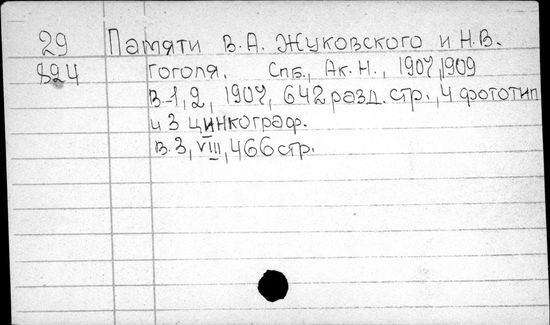 29 Памяти В.А. Жуковского и Н.В.
824 Гоголя. Спб., Ак.Н., 1907,1909
В.1,2, 1907, 642 разд.стр., 4 фототип
и 3 цинкограф.
В.3, VIII, 466 стр.